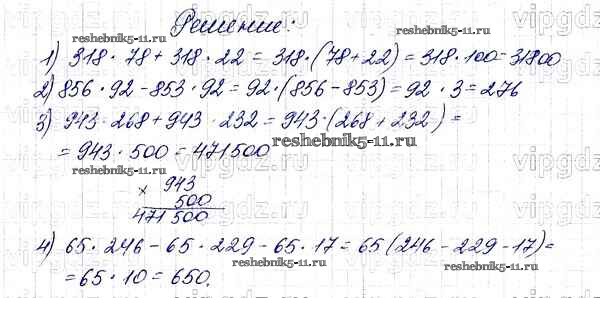 Решение:
reshebnik5-11.ru
1) 318 · 78 + 318 · 22 = 318 · (78 + 22) = 318 · 100 = 31800
2) 856 · 92 - 853 · 92 = 92 · (856 - 853) = 92 · 3 = 276
3) 943 · 268 + 943 · 232 = 943 · (268 + 232) =
= 943 · 500 = 471500
reshebnik5-11.ru
reshebnik5-11.ru
× 943
500
471 500
4) 65 · 246 - 65 · 229 - 65 · 17 = 65 (246 - 229 - 17) =
reshebnik5-11.ru
reshebnik5-11.ru
= 65 · 10 = 650.
vipgdz.ru
vipgdz.ru
vipgdz.ru